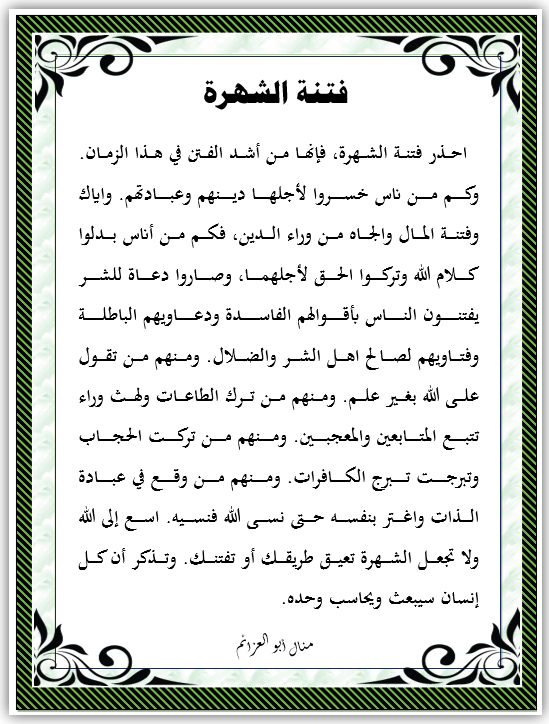 فتنة الشهرة
احذر فتنة الشهرة، فإنها من أشد الفتن في هذا الزمان.
وكم من ناس خسروا لأجلها دينهم وعبادتهم. واياك
وفتنة المال والجاه من وراء الدين، فكم من أناس بدلوا
كلام الله وتركوا الحق لأجلهما، وصاروا دعاة للشر
يفتنون الناس بأقوالهم الفاسدة ودعاويهم الباطلة
وفتاويهم لصالح اهل الشر والضلال. ومنهم من تقول
على الله بغير علم. ومنهم من ترك الطاعات ولهث وراء
تتبع المتابعين والمعجبين. ومنهم من تركت الحجاب
وتبرجت تبرج الكافرات. ومنهم من وقع في عبادة
الذات واغتر بنفسه حتى نسى الله فنسيه. اسع إلى الله
ولا تجعل الشهرة تعيق طريقك أو تفتنك. وتذكر أن كل
إنسان سيبعث ويحاسب وحده.
منال أبو العزائم